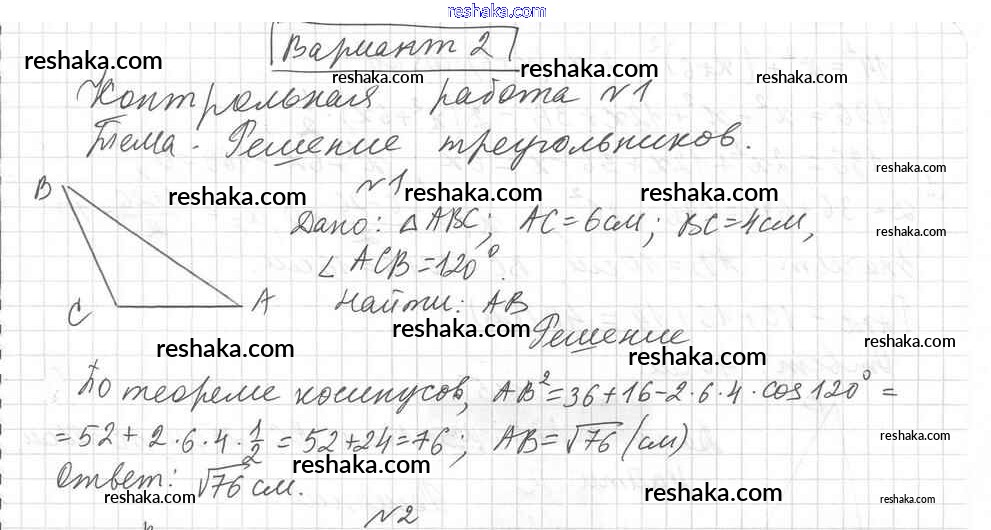 reshaka.com
Вариант 2
reshaka.com reshaka.com reshaka.com reshaka.com
Контрольная работа №1
Тема. Решение треугольников.
reshaka.com
№1
reshaka.com reshaka.com reshaka.com
B
Дано: △ABC; AC=6см; BC=4см,
reshaka.com
∠ACB=120°.
C A
Найти: AB
reshaka.com
Решение
reshaka.com reshaka.com reshaka.com
По теореме косинусов, AB²=36+16-2·6·4·cos120°=
=52+2·6·4·1/2=52+24=76; AB=√76 (см)
reshaka.com
reshaka.com
Ответ: √76 см.
reshaka.com reshaka.com reshaka.com
№2